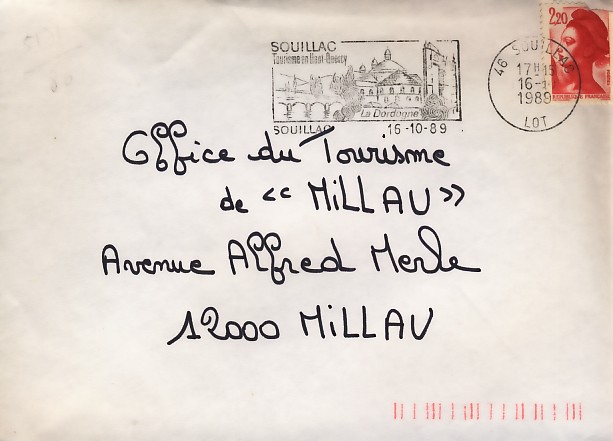 SOUILLAC
Tourisme en Haut-Quercy
La Dordogne
SOUILLAC 16-10-89
46 SOUILLAC
17H15
16-1
1989
LOT
2,20
Office du Tourisme
de "MiLLAU"
Avenue Alfred Merle
12000 MiLLAU